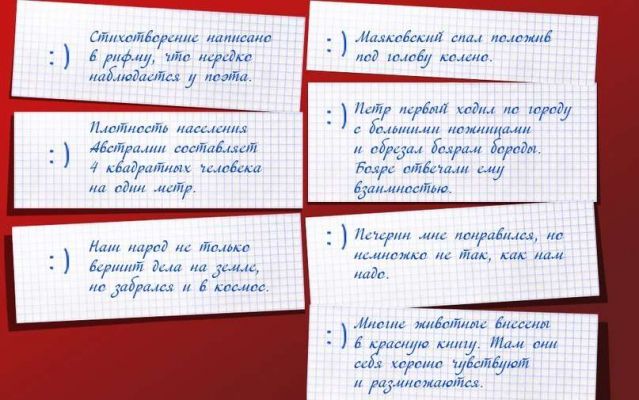 :) Стихотворение написано
в рифму, что нередко
наблюдается у поэта.
:) Плотность населения
Австралии составляет
4 квадратных человека
на один метр.
:) Наш народ не только
вершит дела на земле,
но забрался и в космос.
:) Маяковский спал положив
под голову колено.
:) Петр первый ходил по городу
с большими ножницами
и обрезал боярам бороды.
Бояре отвечали ему
взаимностью.
:) Печерин мне понравился, но
немножко не так, как нам
надо.
:) Многие животные внесены
в красную книгу. Там они
себя хорошо чувствуют
и размножаются.